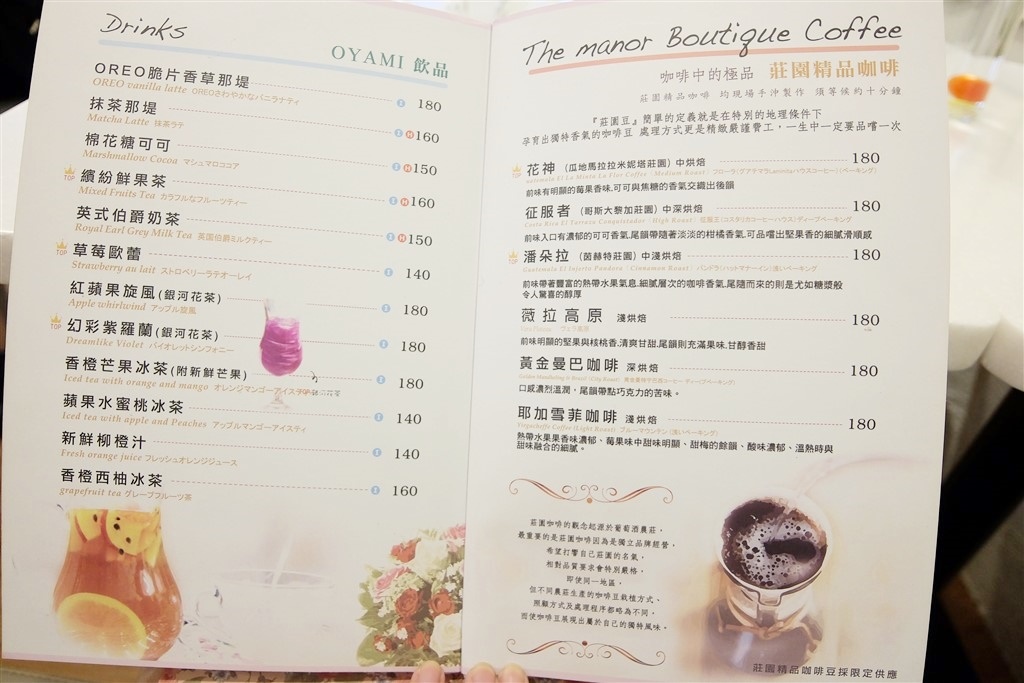 Drinks
OYAMI 飲品
OREO脆片香草那堤 I 180
OREO vanilla latte OREOさわやかなバニラナティ
抹茶那堤 I H 160
Matcha Latte 抹茶ラテ
棉花糖可可 I H 150
Marshmallow Cocoa マシュマロココア
TOP 繽紛鮮果茶 I H 160
Mixed Fruits Tea カラフルなフルーツティー
英式伯爵奶茶 I H 150
Royal Earl Grey Milk Tea 英国伯爵ミルクティー
TOP 草莓歐蕾 I 140
Strawberry au lait ストロベリーラテオーレイ
紅蘋果旋風(銀河花茶) I 180
Apple whirlwind アップル旋風
TOP 幻彩紫羅蘭(銀河花茶) I 180
Dreamlike Violet バイオレットシンフォニー
香橙芒果冰茶(附新鮮芒果) I 180
Iced tea with orange and mango オレンジマンゴーアイスティー
蘋果水蜜桃冰茶 I 140
Iced tea with apple and Peaches アップルマンゴーアイスティ
新鮮柳橙汁 I 140
Fresh orange juice フレッシュオレンジジュース
香橙西柚冰茶 I 160
grapefruit tea グレープフルーツ茶
The manor Boutique Coffee
咖啡中的極品 莊園精品咖啡
莊園精品咖啡 均現場手沖製作 須等候約十分鐘
『莊園豆』簡單的定義就是在特別的地理條件下
孕育出獨特香氣的咖啡豆 處理方式更是精緻嚴謹費工，一生中一定要品嚐一次
TOP 花神 (瓜地馬拉拉米妮塔莊園) 中烘焙 180
前味有明顯的莓果香味,可可與焦糖的香氣交織出後韻
征服者 (哥斯大黎加莊園) 中深烘焙 180
前味入口有濃郁的可可香氣,尾韻帶隨著淡淡的柑橘香氣,可品嚐出堅果香的細膩滑順感
TOP 潘朵拉 (茵赫特莊園) 中淺烘焙 180
前味帶著豐富的熱帶水果氣息,細膩層次的咖啡香氣,尾隨而來的則是尤如糖漿般
令人驚喜的醇厚
薇拉高原 淺烘焙 180
前味明顯的堅果與核桃香,清爽甘甜,尾韻則充滿果味,甘醇香甜
黃金曼巴咖啡 深烘焙 180
口感濃烈溫潤，尾韻帶點巧克力的苦味。
耶加雪菲咖啡 淺烘焙 180
Yirgacheffe Coffee (Light Roast)
熱帶水果果香味濃郁、莓果味中甜味明顯、甜梅的餘韻、酸味濃郁、溫熱時與
甜味融合的細膩。
莊園咖啡的觀念起源於葡萄酒農莊，
最重要的是莊園咖啡因為是獨立品牌經營，
希望打響自己莊園的名氣，
相對品質要求會特別嚴格，
即使同一地區，
但不同農莊生產的咖啡豆栽植方式、
照顧方式及處理程序都略為不同，
而使咖啡豆展現出屬於自己的獨特風味。
莊園精品咖啡豆採限定供應